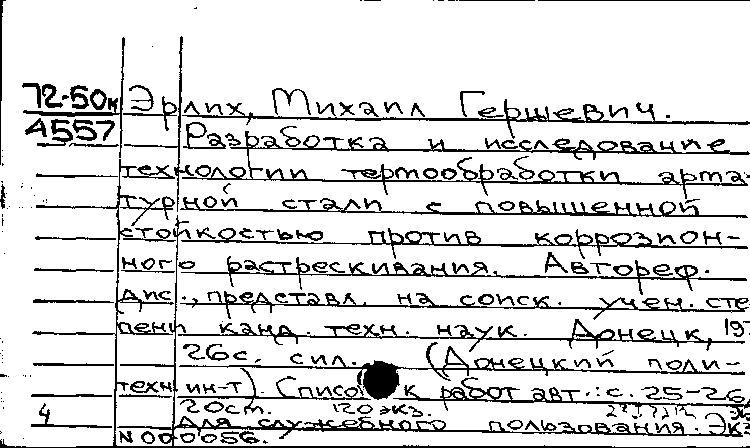 72-50к Эрлих, Михаил Гершевич.
А557 Разработка и исследование
технологии термообработки арма-
турной стали с повышенной
стойкостью против коррозион-
ного растрескивания. Автореф.
дис., представл. на соиск. учен. сте
пени канд. техн. наук. Донецк, 197
26с. с ил. (Донецкий поли-
техн. ин-т). Список работ авт.: с. 25-26
4 20ст. 120 экз.
Для служебного пользования. Экз
N 000056.